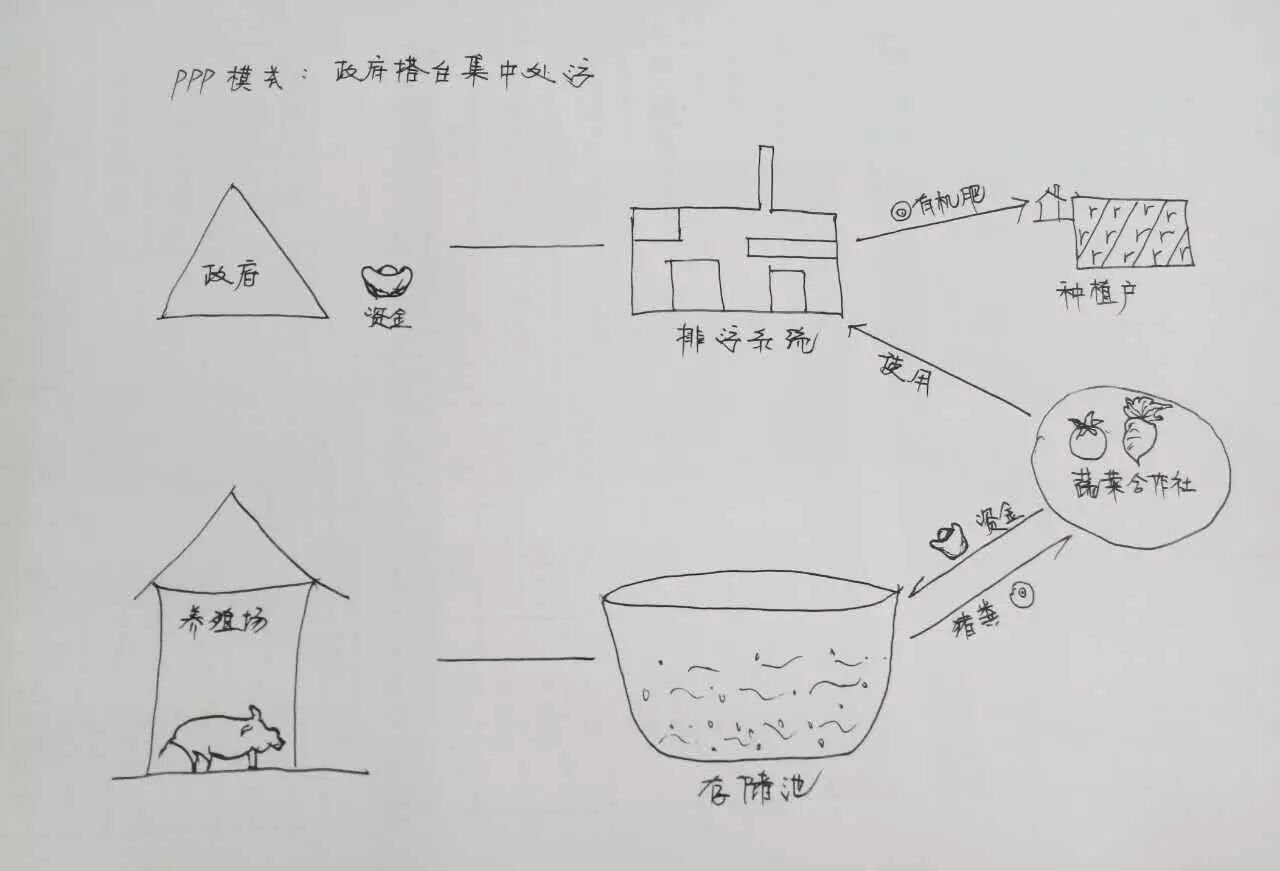 PPP模式：政府搭台集中处污
政府
资金
排污系统
有机肥
种植户
使用
蔬菜合作社
资金
猪粪
养殖场
存储池